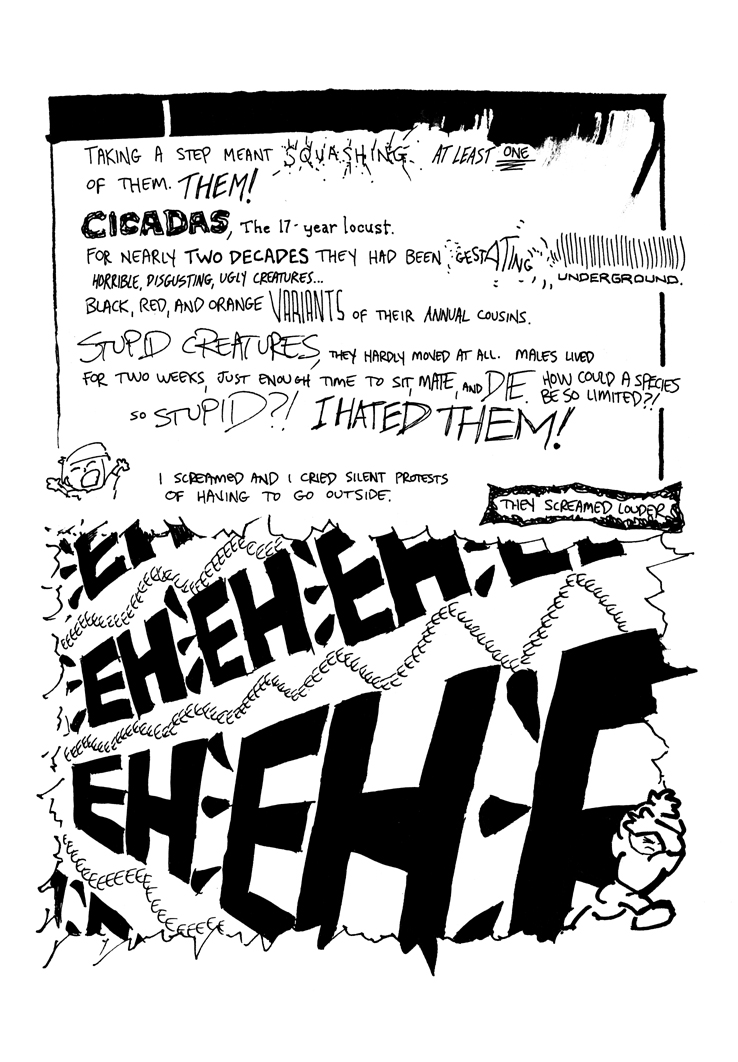 TAKING A STEP MEANT SQUASHING AT LEAST ONE
OF THEM. THEM!
CICADAS, The 17-year locust.
FOR NEARLY TWO DECADES THEY HAD BEEN GESTATING
UNDERGROUND.
HORRIBLE, DISGUSTING, UGLY CREATURES...
BLACK, RED, AND ORANGE VARIANTS OF THEIR ANNUAL COUSINS.
STUPID CREATURES, THEY HARDLY MOVED AT ALL. MALES LIVED
FOR TWO WEEKS, JUST ENOUGH TIME TO SIT, MATE, AND DIE. HOW COULD A SPECIES
BE SO LIMITED?!
SO STUPID?! I HATED THEM!
I SCREAMED AND I CRIED SILENT PROTESTS
OF HAVING TO GO OUTSIDE.
THEY SCREAMED LOUDER
EH
EH EH EH
EH EH E